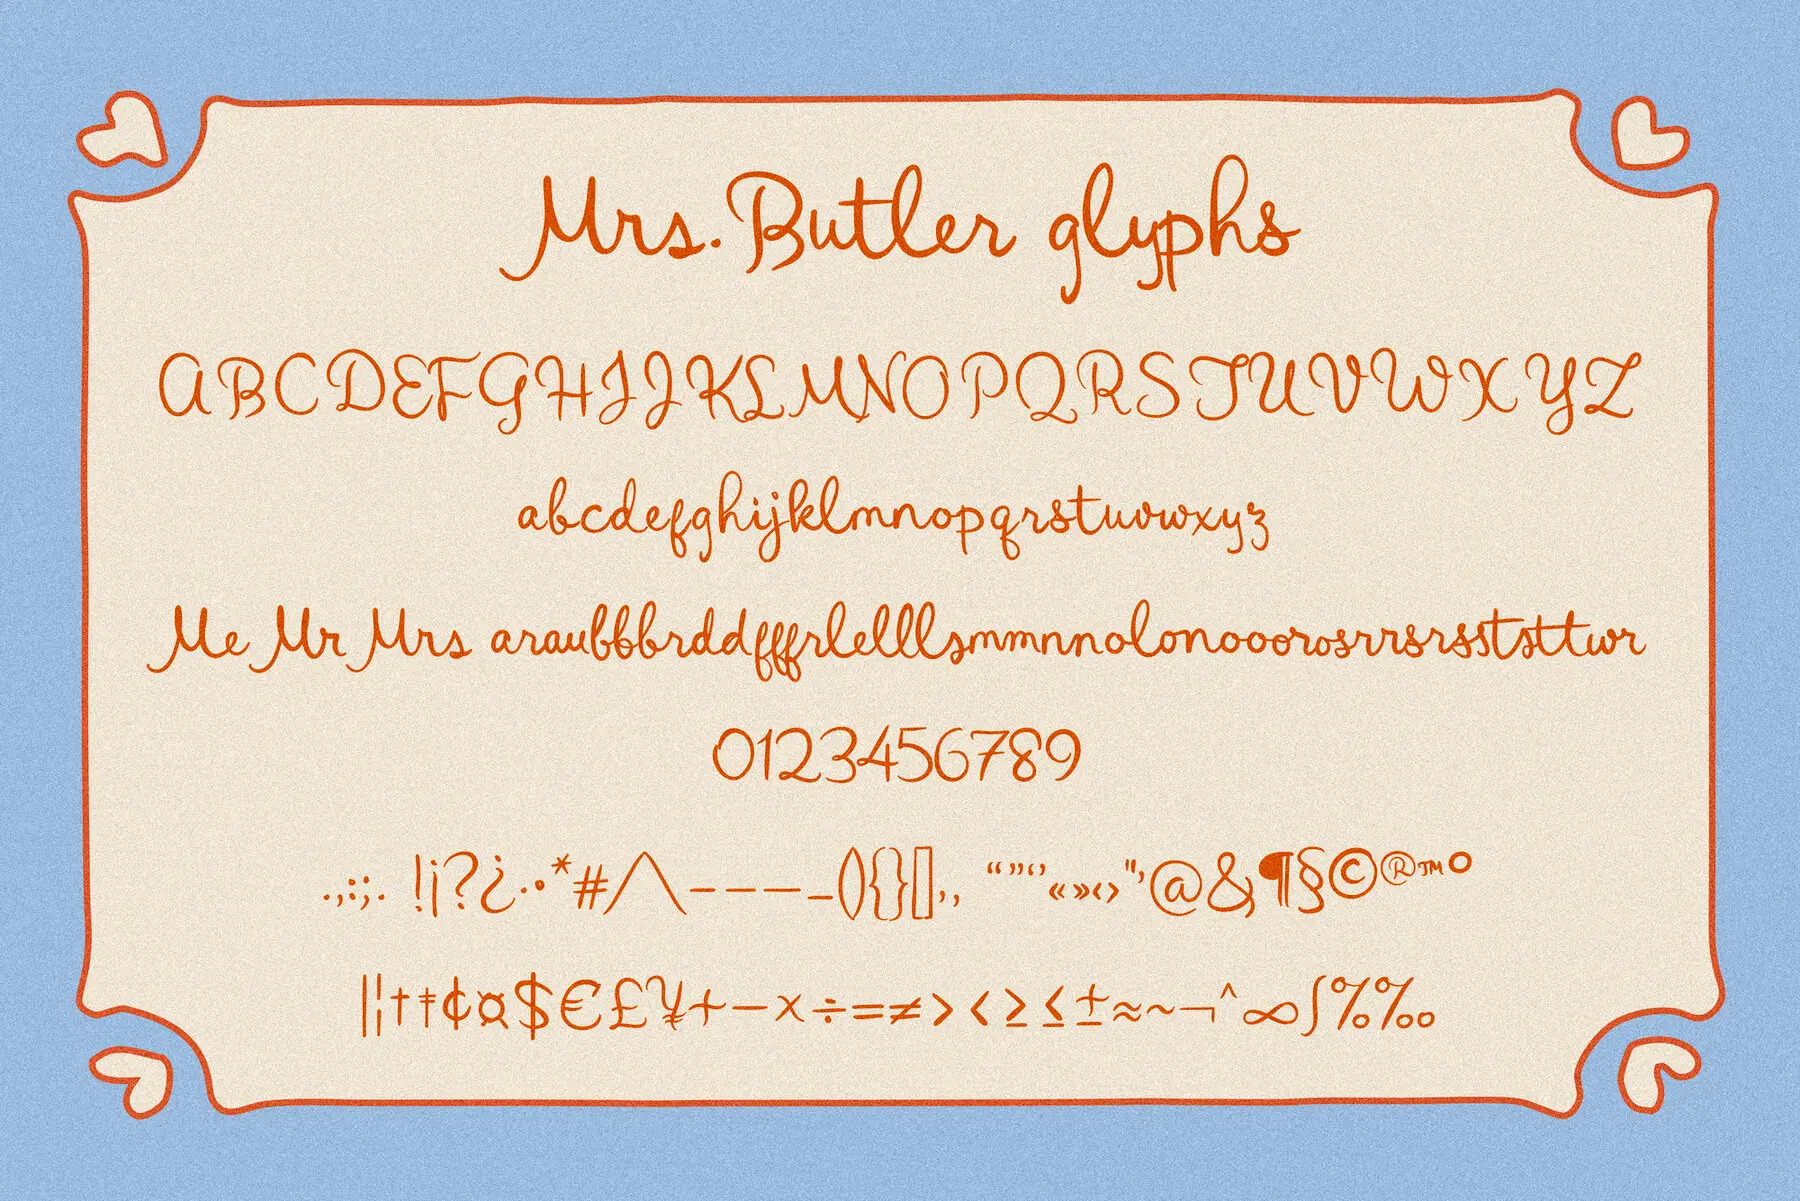 Mrs. Butler glyphs
ABCDEFGHIJKLMNOPQRSTUVWXYZ
abcdefghijklmnopqrstuvwxyz
Me Mr Mrs araubbbrddfffrlelllsmmnnolonooorosrrsrsststtwr
0123456789
.,:;. !¡?¿·•*#/\-–—_(){}[]‚, “”‘’«»‹›"'@&¶§©®™°
|¦†‡¢¤$€£¥+−×÷=≠><≥≤±≈~¬^∞∫%‰